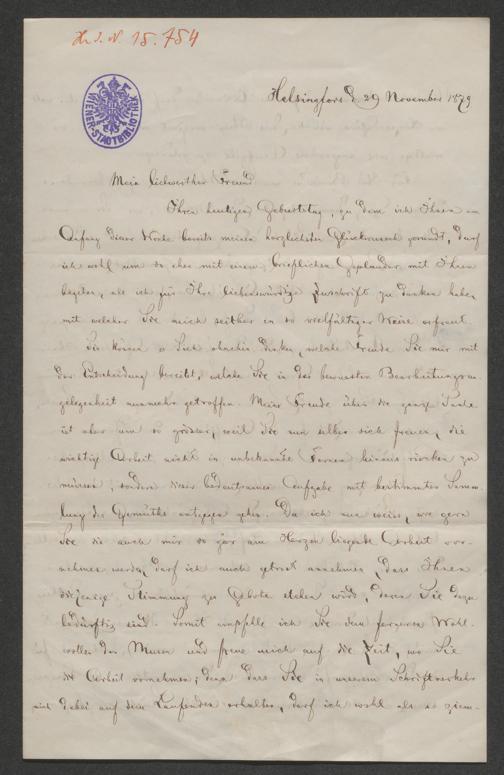 H. I. N. 15.754
WIENER-STADTBIBLIOTHEK
Helsingfors d. 29 November 1879
Mein liebwerther Freund
Ihren heutigen Geburtstag, zu dem ich Ihnen am
Anfang dieser Woche bereits meinen herzlichsten Glückwunsch gesandt, darf
ich wohl um so eher mit einem brieflichen Geplauder mit Ihnen
begehen, als ich für Ihre liebenswürdige Zuschrift zu danken habe,
mit welcher Sie mich seither in so vielfältiger Weise erfreut.
Sie können sich ohnehin denken, welche Freude Sie mir mit
der Entscheidung bereitet, welche Sie in der bewussten Bearbeitungsan-
gelegenheit nunmehr getroffen. Meine Freude über die ganze Sache
ist aber um so grösser, weil Sie nun selber sich freuen, die
wichtige Arbeit nicht in unbekannte Fernen hinaus rücken zu
müssen, sondern dieser bedeutsamen Aufgabe mit bestimmter Samm-
lung des Gemüths entgegen gehen. Da ich nun weiss, wie gern
Sie die auch mir so gar am Herzen liegende Arbeit vor-
nehmen werden, darf ich auch getrost annehmen, dass Ihnen
diejenige Stimmung zu Gebote stehen wird, deren Sie dazu
bedürftig sind. Somit empfehle ich Sie dem ferneren Wohl-
wollen der Musen und freue mich auf die Zeit, wo Sie
die Arbeit vornehmen; denn dass Sie in unserem Schriftverkehr
mich dabei auf dem Laufenden erhalten, darf ich wohl als ziem-